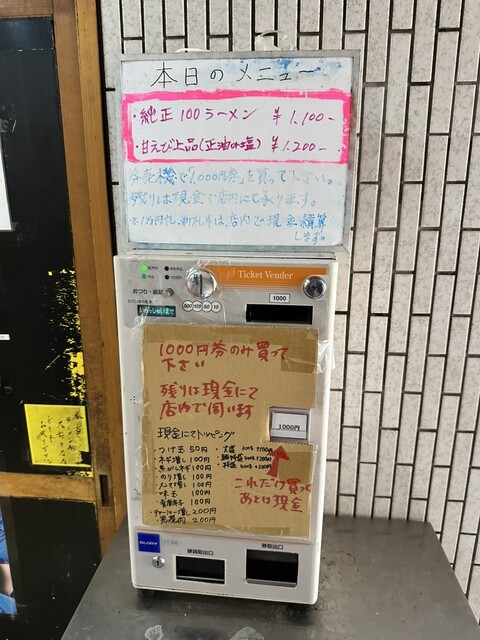 本日のメニュー
・純正100ラーメン ¥1,100-
・甘えび上品(正油or塩) ¥1,200-
券売機で「1,000円券」を買って下さい。
残りは現金で店内にて承ります。
1万円札、新札等は、店内で現金精算
します。
Ticket Vender
おつり・返却
いらっしゃいませ
500 100 50 10
1000
1000円券のみ買って
下さい
残りは現金にて
店内で伺います
1000円
現金にてトッピング
・つけ玉 50円
・ネギ増し 100円
・焦がしネギ 100円
・のり増し 100円
・メンマ増し 100円
・味玉 100円
・チャーシュー増し 200円
200円
これだけ買って
あとは現金
GLORY
硬貨取出口
券取出口